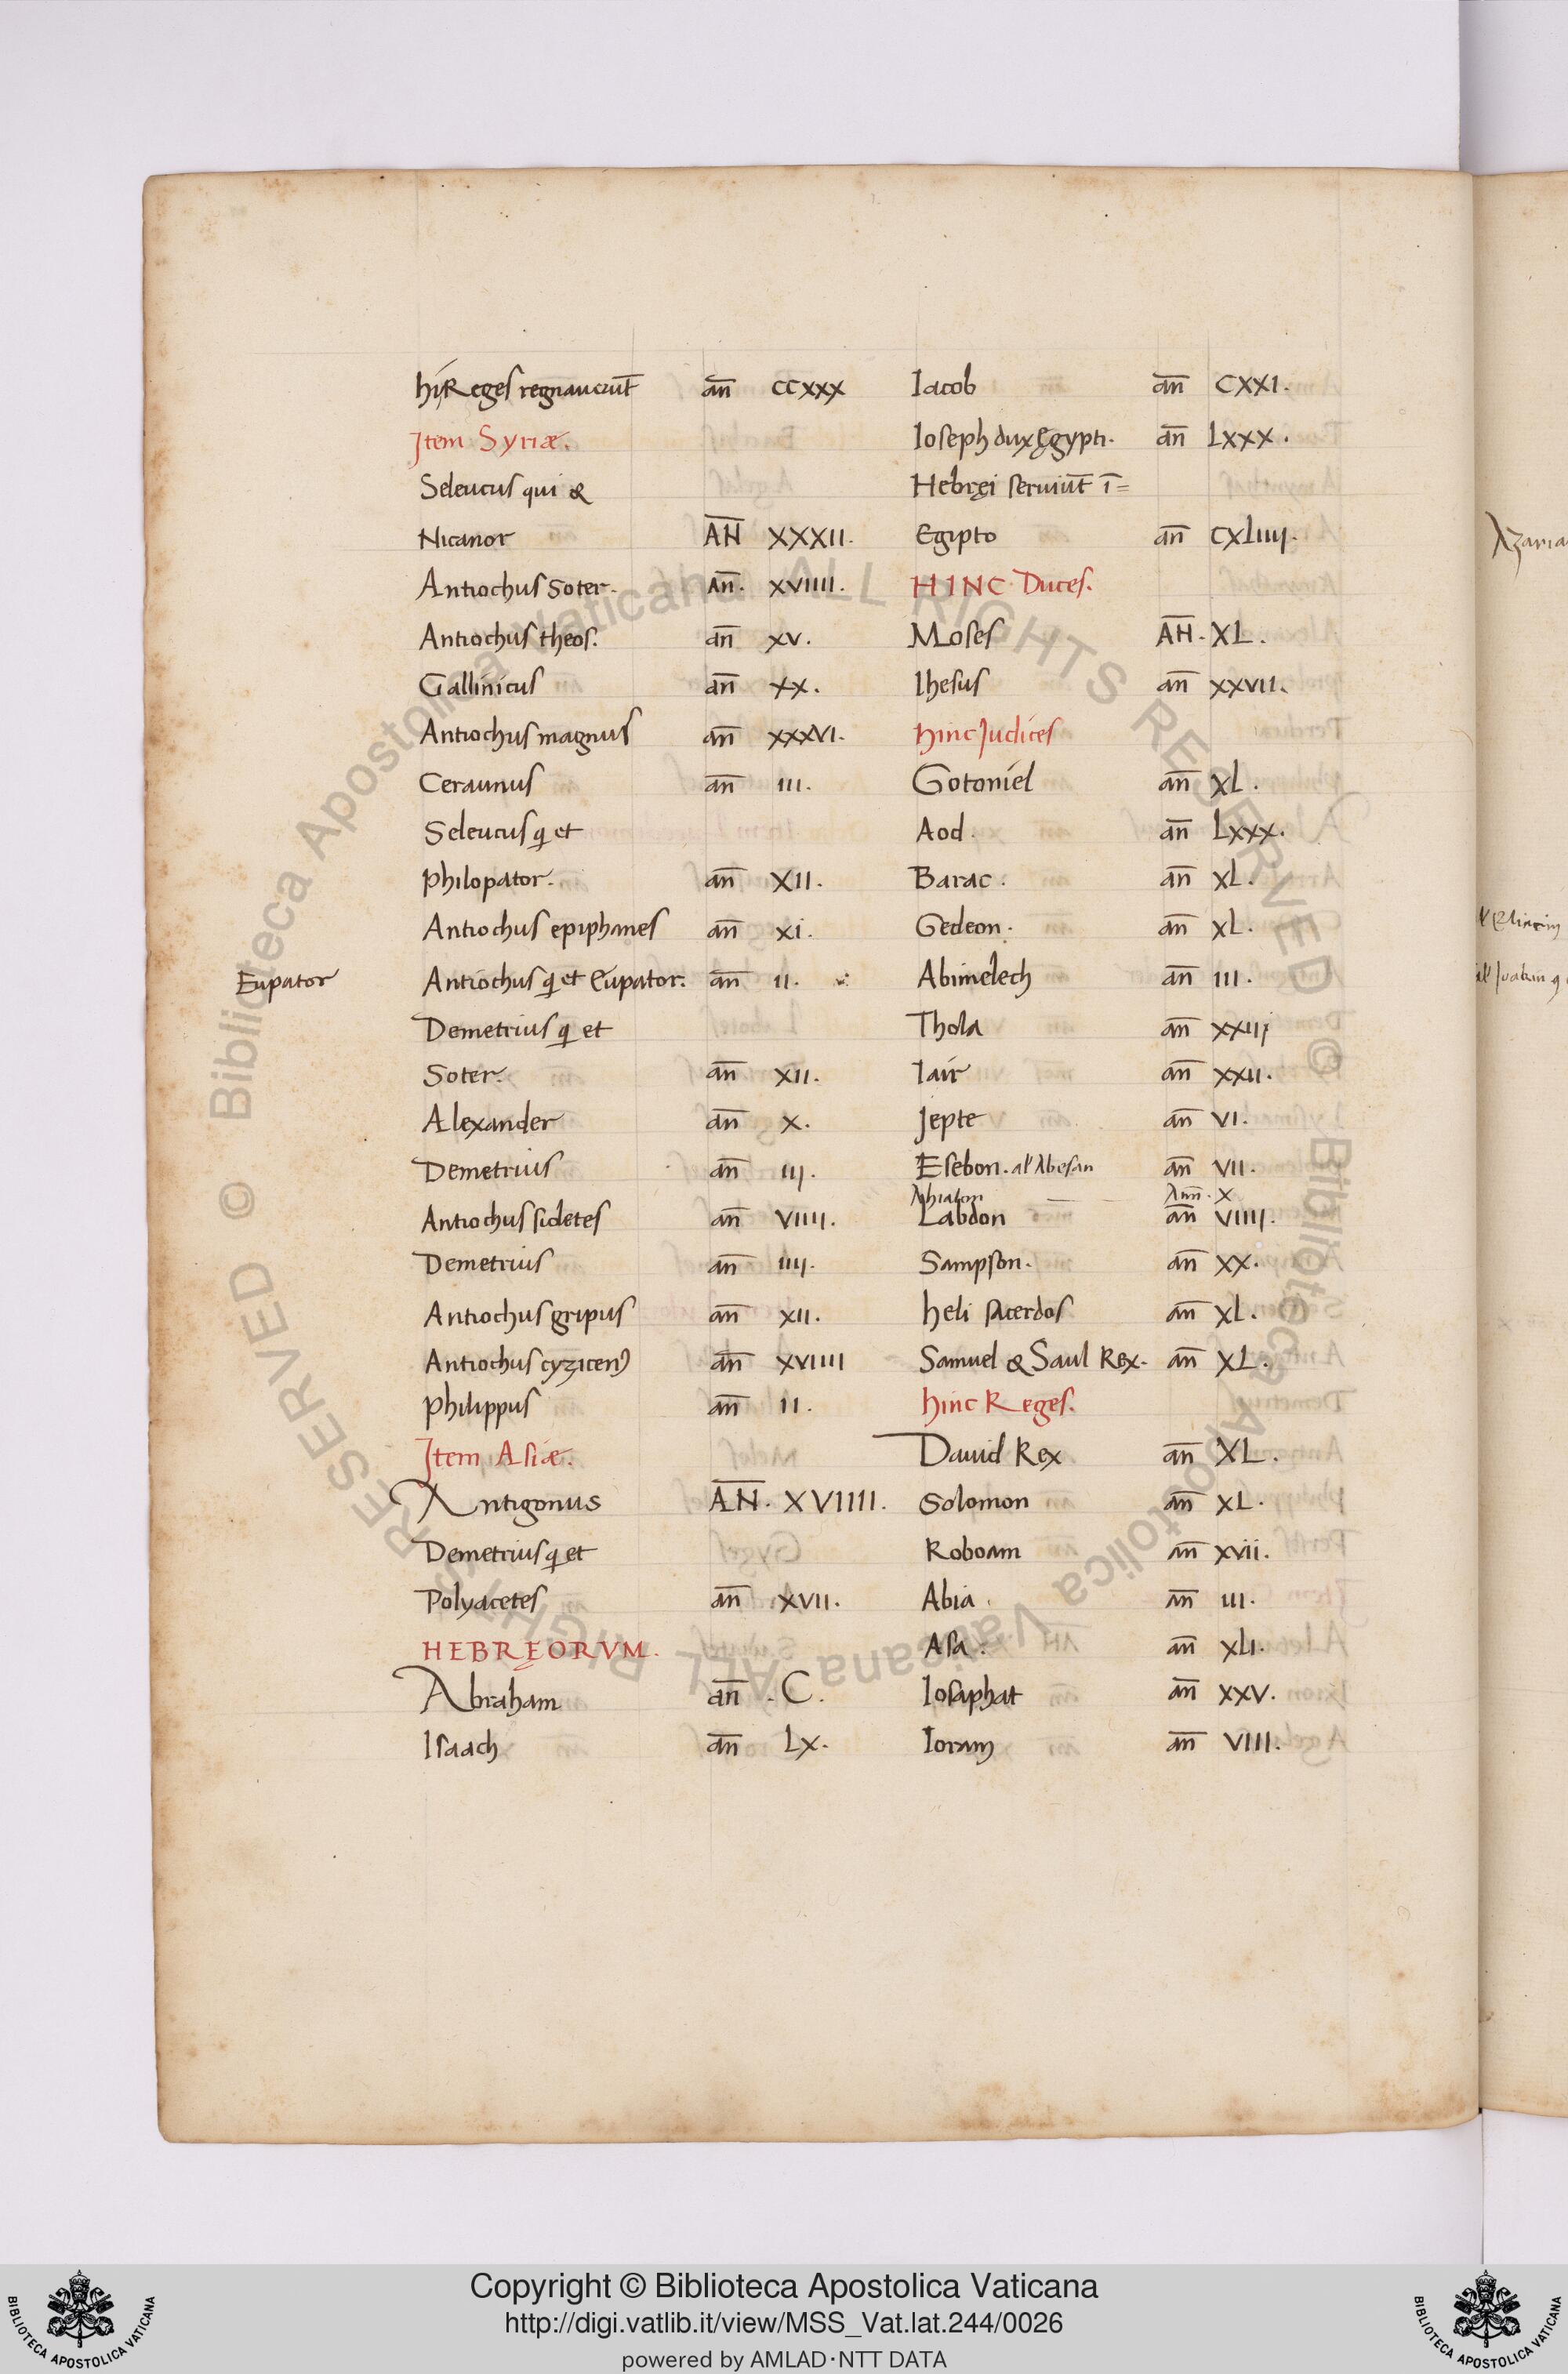 hi Reges regnauerūt an̅ CCXXX
Item Syriæ.
Seleucus qui &
Nicanor AN̅ XXXII.
Antiochus Soter. AN̅. XVIIII.
Antiochus theos. an̅ XV.
Gallinicus an̅ XX.
Antiochus magnus an̅ XXXVI.
Ceraunus an̅ III.
Seleucus q et
philopator. an̅ XII.
Antiochus epiphanes an̅ XI.
Eupator
Antiochus q et Eupator. an̅ II.
Demetrius q et
Soter. an̅ XII.
Alexander an̅ X.
Demetrius an̅ III.
Antiochus sidetes an̅ VIIII.
Demetrius an̅ IIII.
Antiochus gripus an̅ XII.
Antiochus cyzicenꝰ an̅ XVIIII
philippus an̅ II.
Item Asiæ.
Antigonus AN̅. XVIIII.
Demetrius q et
Polyacetes an̅ XVII.
HEBRĘORVM.
Abraham an̅ . C.
Isaach an̅ LX.
Iacob an̅ CXXI.
Ioseph dux ęgypti. an̅ LXXX.
Hebręi seruiūt ī=
Egipto an̅ CXLIIII.
HINC Duces.
Moses AN̅. XL.
Ihesus an̅ XXVII.
hinc Judices
Gotoniel an̅ XL.
Aod. an̅ LXXX.
Barac. an̅ XL.
Gedeon. an̅ XL.
Abimelech an̅ III.
Thola an̅ XXIII
Iair an̅ XXII.
Jepte an̅ VI.
Esebon. al' Abesan an̅ VII.
Ahialon Ann̅. X
Labdon an̅ VIIII.
Sampson. an̅ XX.
heli sacerdos an̅ XL.
Samuel & Saul Rex. an̅ XL.
hinc Reges.
Dauid Rex an̅ XL.
Solomon an̅ XL.
Roboam an̅ XVII.
Abia. an̅ III.
Asa. an̅ XLI.
Iosaphat an̅ XXV.
Ioram an̅ VIII.
© Biblioteca Apostolica Vaticana ALL RIGHTS RESERVED © Biblioteca Apostolica Vaticana ALL RIGHTS RESERVED
Copyright © Biblioteca Apostolica Vaticana
http://digi.vatlib.it/view/MSS_Vat.lat.244/0026
powered by AMLAD·NTT DATA
BIBLIOTECA APOSTOLICA VATICANA
BIBLIOTECA APOSTOLICA VATICANA